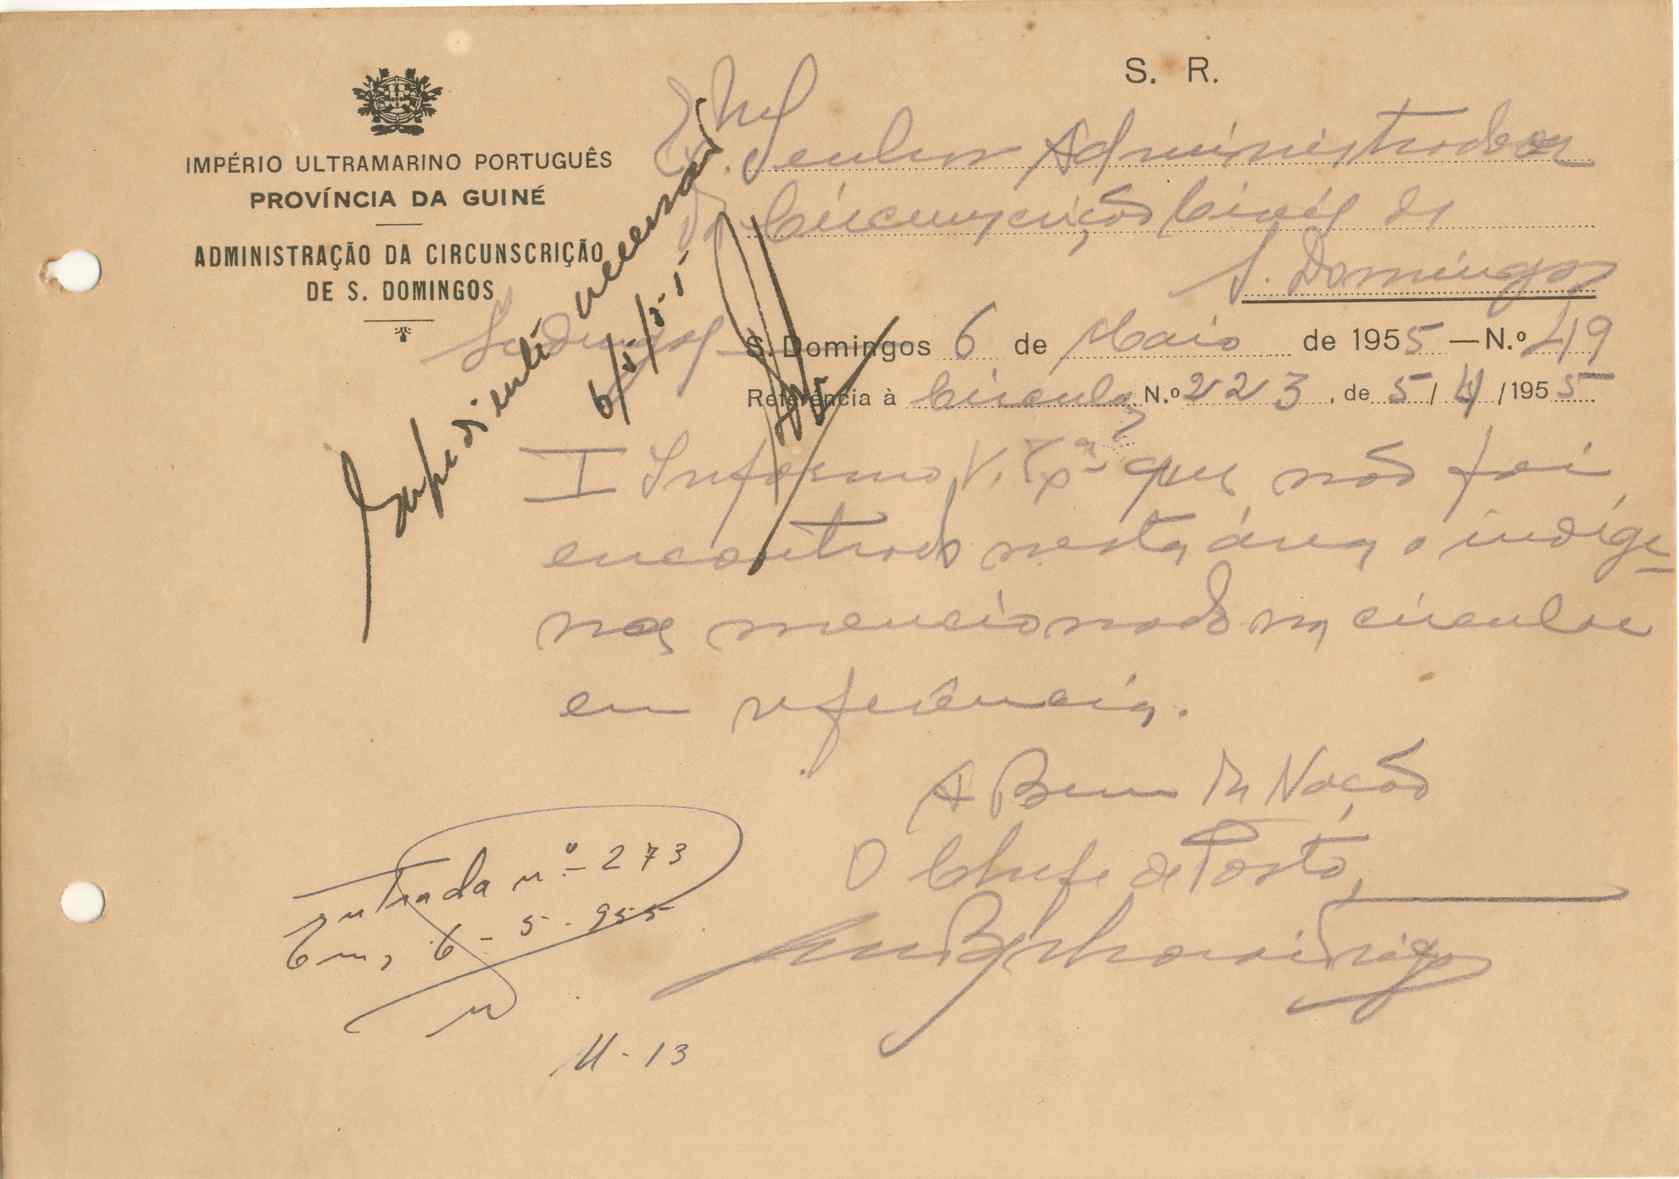 S. R.
IMPÉRIO ULTRAMARINO PORTUGUÊS
PROVÍNCIA DA GUINÉ
ADMINISTRAÇÃO DA CIRCUNSCRIÇÃO
DE S. DOMINGOS
Senhor Administrador
da Circunscrição Civil de
S. Domingos
S. Domingos 6 de Maio de 1955 — N.º 49
Referência à Circular N.º 223, de 5/4/1955
I Informo V. Exª que não foi
encontrado nesta área o indíge-
na mencionado na circular
em referência.
A Bem da Nação
O Chefe de Posto,
Expediente necessário
6/5/55
Entrada nº 273
Em, 6-5-955
M-13